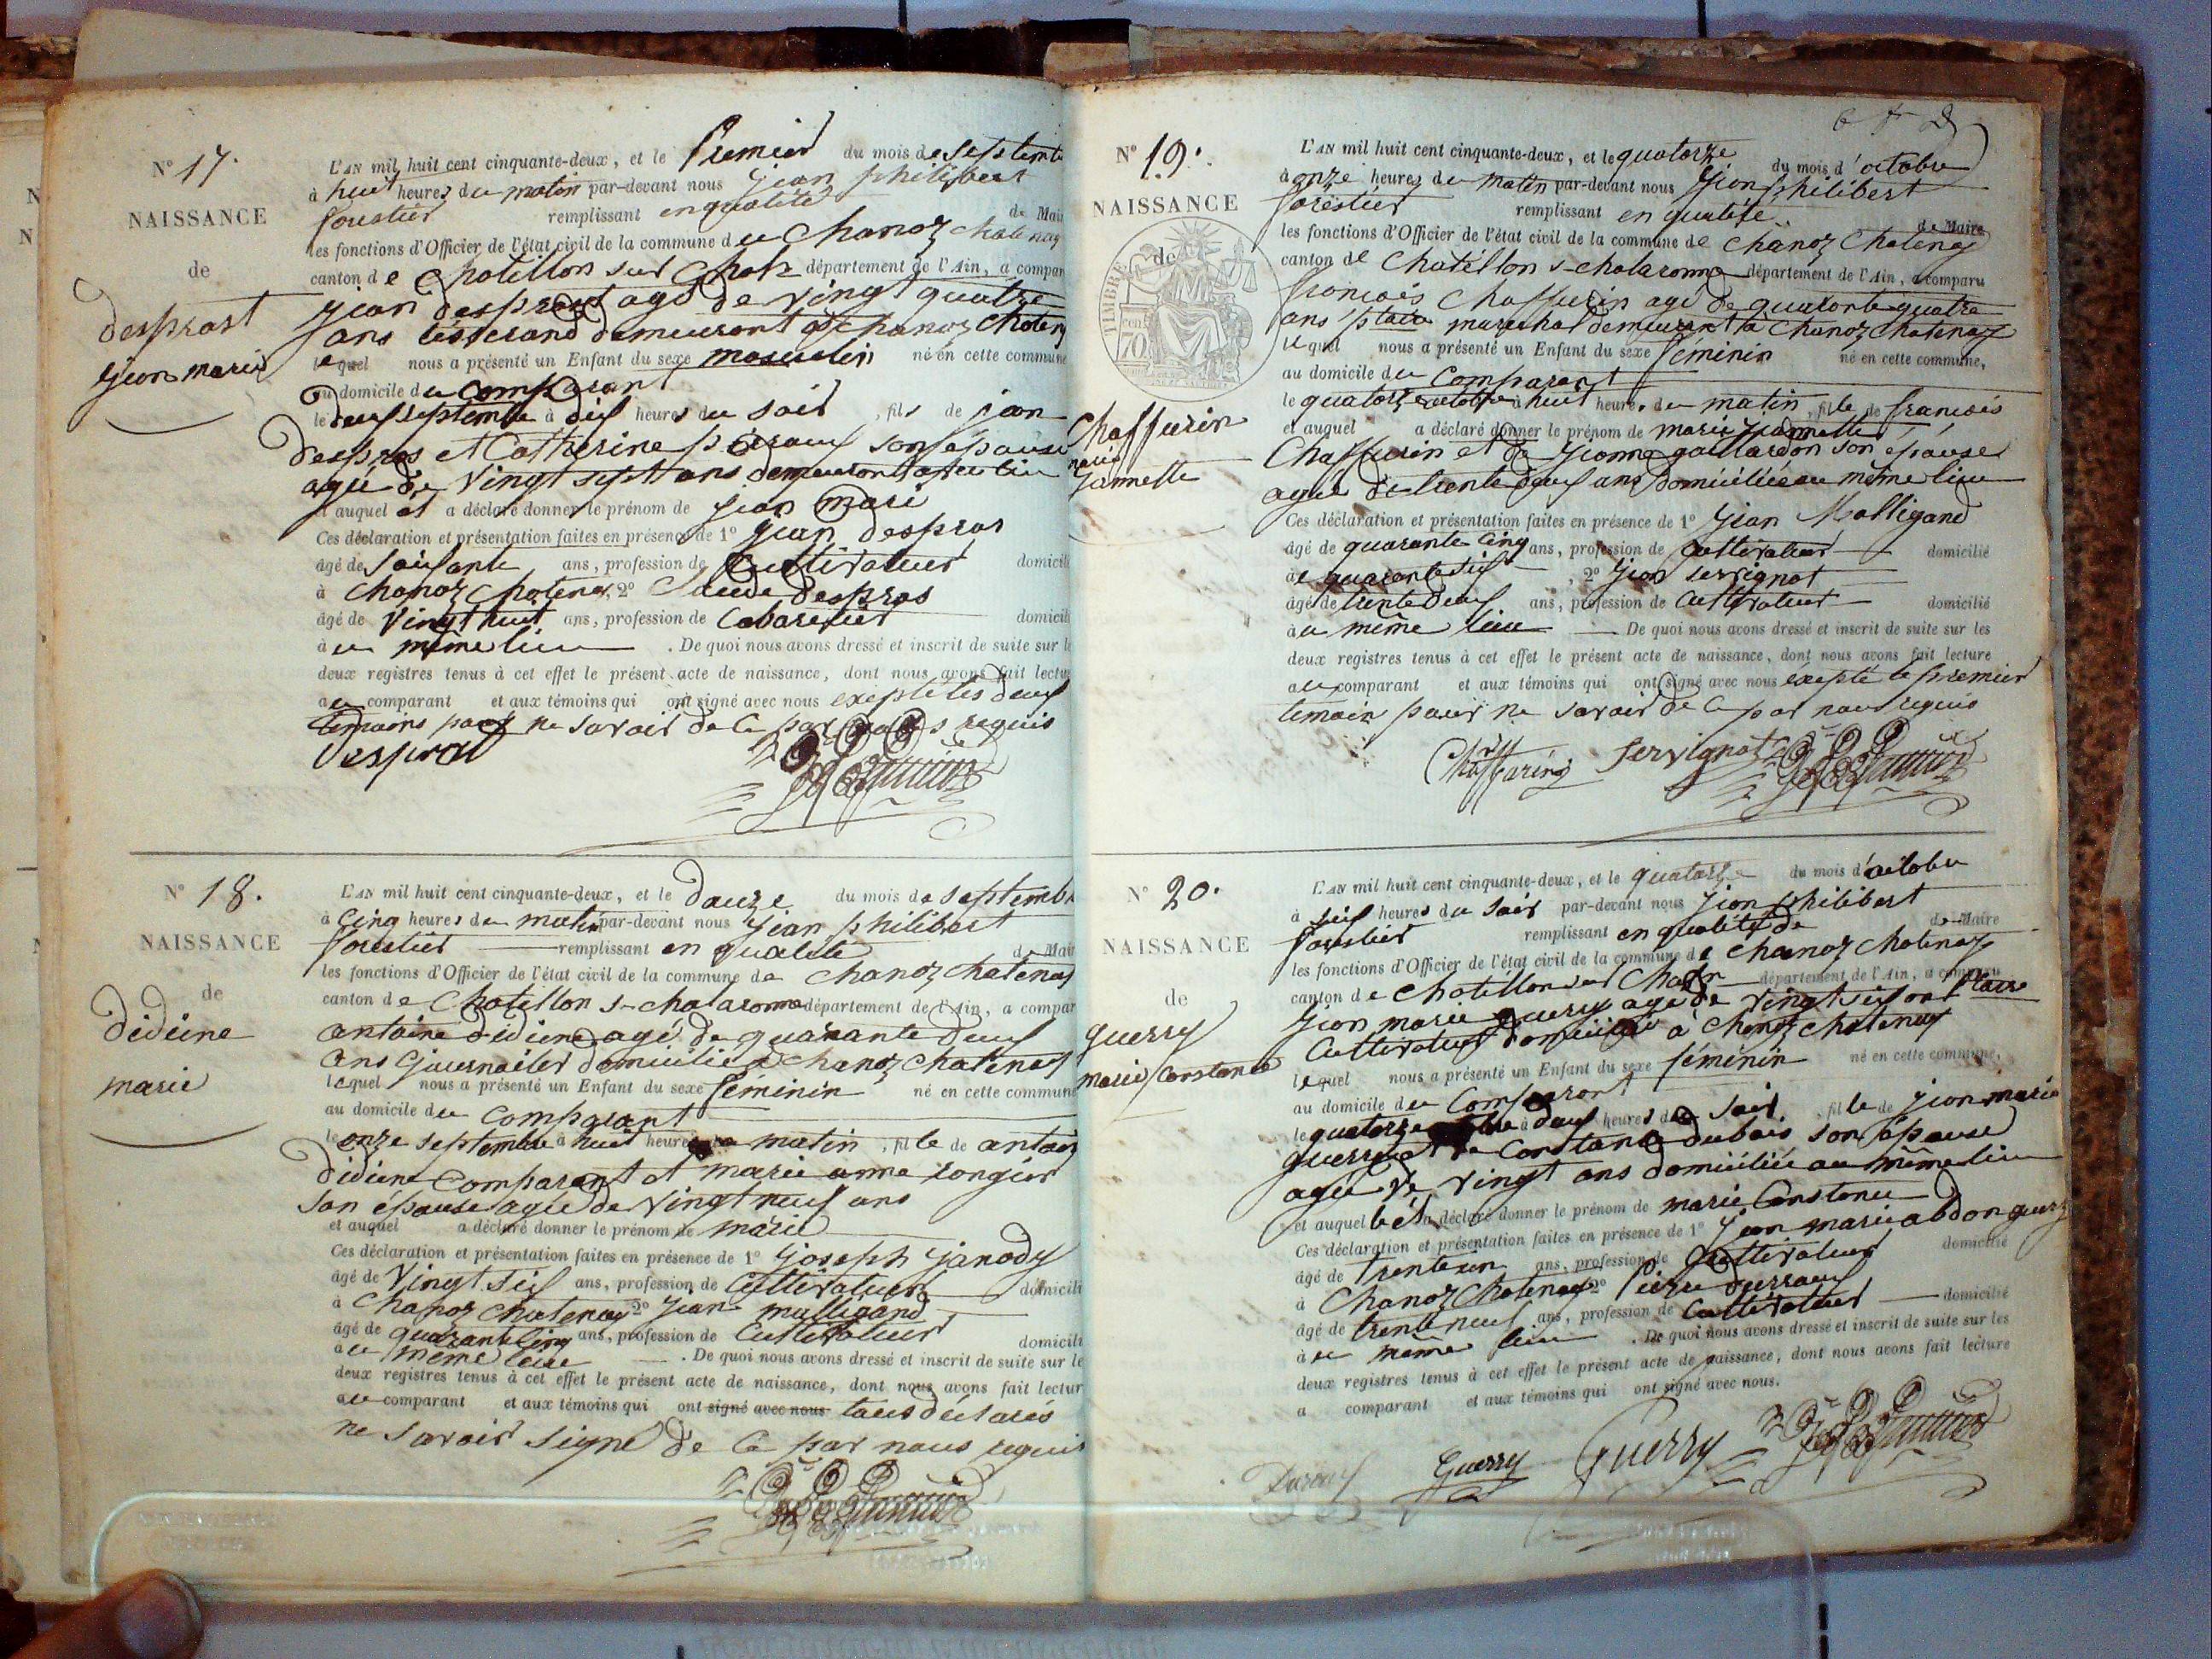 N° 17.
NAISSANCE
de
desprast
jean marie
L'AN mil huit cent cinquante-deux, et le Premier du mois de septemb
à huit heures du matin par-devant nous jean philibert
forestier remplissant en qualité de Mai
les fonctions d'Officier de l'état civil de la commune de Chanoz chatenay
canton de Chatillon sur Chal département de l'Ain, a compar
jean desprast agé de vingt quatre
ans tisserand demeurant a Chanoz chaten
lequel nous a présenté un Enfant du sexe masculin né en cette commune
au domicile du comparant
le septembre à heures du soir, fils de jean
despras et Catherine son épouse
agée de vingt sept ans demeurant
et auquel a déclaré donner le prénom de jean mari
Ces déclaration et présentation faites en présence de 1° jean despras
âgé de soisante ans, profession de Cultivateur domicili
à Chanoz Chatenay 2° Claude despras
âgé de vingt huit ans, profession de Cabaretier domicili
à u même lieu . De quoi nous avons dressé et inscrit de suite sur le
deux registres tenus à cet effet le présent acte de naissance, dont nous avons fait lectur
au comparant et aux témoins qui ont signé avec nous exepté les deux
temoins pour ne savoir de ce par nous requis
Despras
N° 18.
NAISSANCE
de
didiène
marie
L'AN mil huit cent cinquante-deux, et le douze du mois de septemb
à cinq heures du matin par-devant nous jean philibert
forestier remplissant en qualité de Mai
les fonctions d'Officier de l'état civil de la commune de Chanoz chatenay
canton de Chatillon s-chalaronne département de l'Ain, a compar
antoine didiene agé de quarante deux
ans journalier domicilié a chanoz chatenay
lequel nous a présenté un Enfant du sexe féminin né en cette commune
au domicile du comparant
le onze septembre à huit heures matin, fille de antoin
didiene comparant et marie anne
son épouse agée de vingt neuf ans
et auquel a déclaré donner le prénom de marie
Ces déclaration et présentation faites en présence de 1° joseph janody
âgé de vingt six ans, profession de Cultivateur domicili
à Chanoz Chatenay 2° jean malligand
âgé de quarante cinq ans, profession de Cultivateur domicili
à u même lieu . De quoi nous avons dressé et inscrit de suite sur le
deux registres tenus à cet effet le présent acte de naissance, dont nous avons fait lectur
au comparant et aux témoins qui ont signé avec nous tous déclarés
ne savoir signé de ce par nous requis
N° 19.
NAISSANCE
de
TIMBRE
70
Chaffurin
marie
jannette
L'AN mil huit cent cinquante-deux, et le quatorze du mois d'octobre
à onze heures du matin par-devant nous jean philibert
forestier remplissant en qualité de Maire
les fonctions d'Officier de l'état civil de la commune de Chanoz Chatenay
canton de Chatillon s-chalaronne département de l'Ain, a comparu
francois Chaffurin agé de quarante quatre
ans marechal demeurant a Chanoz Chatenay
lequel nous a présenté un Enfant du sexe féminin né en cette commune,
au domicile du comparant
le quatorze octobre à huit heures du matin, fille de françois
et auquel a déclaré donner le prénom de marie jeannette
Chaffurin et de jeanne gaillardon son épouse
agée de trente deux ans domiciliée au même lieu
Ces déclaration et présentation faites en présence de 1° jean Malligand
âgé de quarante cinq ans, profession de Cultivateur domicilié
à , 2° jean servignat
âgé de trente deux ans, profession de Cultivateur domicilié
à u même lieu . De quoi nous avons dressé et inscrit de suite sur les
deux registres tenus à cet effet le présent acte de naissance, dont nous avons fait lecture
au comparant et aux témoins qui ont signé avec nous exepté le premier
temoin pour ne savoir de ce par nous requis
Chaffaring Servignat
N° 20.
NAISSANCE
de
guerry
marie constance
L'AN mil huit cent cinquante-deux, et le quatorze du mois d'octobre
à six heures du soir par-devant nous jean philibert
forestier remplissant en qualité de de Maire
les fonctions d'Officier de l'état civil de la commune de Chanoz Chatenay
canton de Chatillon sur Chal département de l'Ain, a comparu
jean marie guerry agé de vingt six ans
Cultivateur domicilié à Chanoz Chatenay
lequel nous a présenté un Enfant du sexe féminin né en cette commune,
au domicile du Comparant
le quatorze à deux heures du soir, fille de jean marie
guerry et de Constance dubois son épouse
agée de vingt ans domiciliée au même lieu
et auquel a déclaré donner le prénom de marie Constance
Ces déclaration et présentation faites en présence de 1° jean marie abdon guerry
âgé de trente un ans, profession de Cultivateur domicilié
à Chanoz Chatenay 2° Pierre
âgé de trente neuf ans, profession de Cultivateur domicilié
à u même lieu . De quoi nous avons dressé et inscrit de suite sur les
deux registres tenus à cet effet le présent acte de naissance, dont nous avons fait lecture
a comparant et aux témoins qui ont signé avec nous.
Guerry Guerry